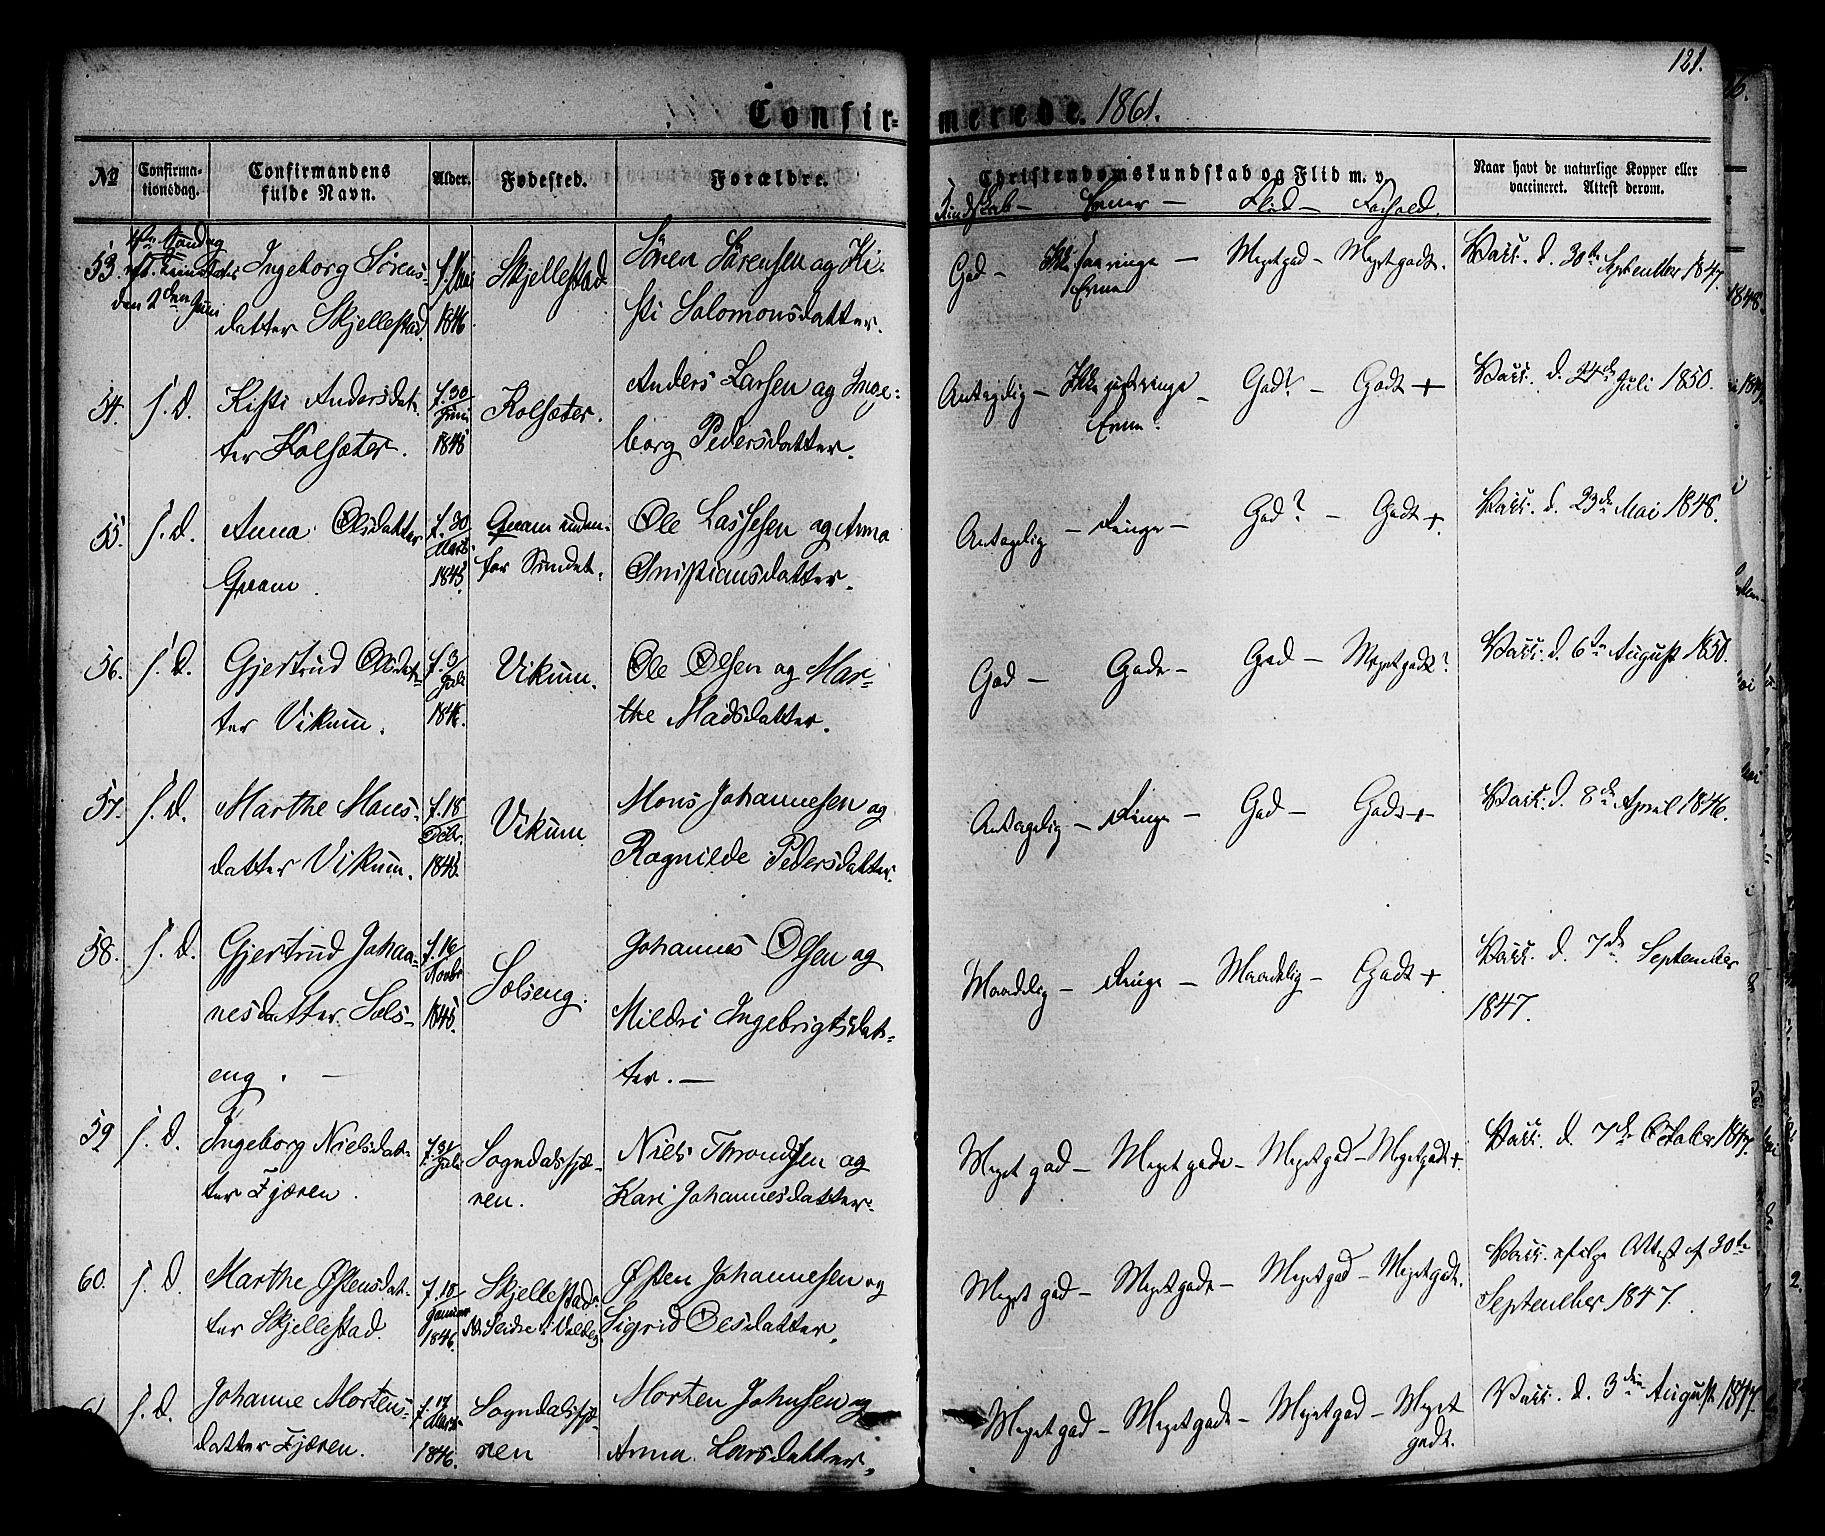 121.
Confirmerede. 1861.
No
Confirmationsdag.
Confirmandens fulde Navn.
Alder.
Fødested.
Forældre.
Christendomskundskab og Flid m. v.
Naar havt de naturlige Kopper eller vaccineret. Attest derom.
Kundskab – Evner – Flid – Forhold.
53.
den 2den Juni
Ingeborg Sørens-
datter Skjellestad.
1846
Skjellestad
Søren Sørensen og Ki-
sti Salomonsdatter.
God –
Ikke saa ringe –
Evner
Meget god – Meget godt.
Vacc. d. 30te September 1847.
54.
s. D.
Kisti Andersdat-
ter Kolsæter.
f. 30
Juni
1845
Kolsæter.
Anders Larsen og Inge-
borg Pedersdatter.
Antagelig – Ikke ringe –
Evner.
God? – Godt +
Vacc. d. 24de Juli 1850.
55.
s. D.
Anna Olsdatter
Qvam.
f. 30
Marts
1845
Qvam inden-
for Sundet.
Ole Lassesen og Anna
Christiansdatter.
Antagelig – Ringe – God? – Godt +
Vacc. d. 23de Mai 1848.
56.
s. D.
Gjertrud Olsdat-
ter Vikum.
f. 3/
1846.
Vikum.
Ole Olsen og Mar-
the Madsdatter.
God – Gode – God – Meget godt?
Vacc. d. 6te August 1850.
57.
s. D.
Marthe Mons-
datter Vikum.
f. 18
1845.
Vikum.
Mons Johannesen og
Ragnilde Pedersdatter.
Antagelig – Ringe – God – Godt +
Vacc. d. 8de April 1846.
58.
s. D.
Gjertrud Johan-
nesdatter Sols-
eng. –
f. 16
Novbr
1845.
Solseng.
Johannes Olsen og
Mildri Ingebrigtsdat-
ter. –
Maadelig – Ringe – Maadelig – Godt +
Vacc. d. 7de September
1847.
59
s. D.
Ingeborg Nielsdat-
ter Fjæren.
Sogndalsfjæ-
ren.
Niels Throndsen og
Kari Johannesdatter.
Meget god – Meget gode – Meget god – Meget godt +
Vacc. d. 7de October 1847.
60.
s. D.
Marthe Østensdat-
ter Skjellestad.
f. 10
Januar
1846.
Skjellestad
Østen Johannesen og
Sigrid Olsdatter.
Meget god – Meget gode – Meget god – Meget godt.
Vacc. ifølge Attest af 30te
September 1847.
s. D.
Johanne Mortens-
datter Fjæren.
Marts
1846.
Sogndalsfjæ-
ren
Morten Johnsen og
Anna Larsdatter.
Meget god – Meget gode – Meget god – Meget
godt.
Vacc. d. 3die August 1847.